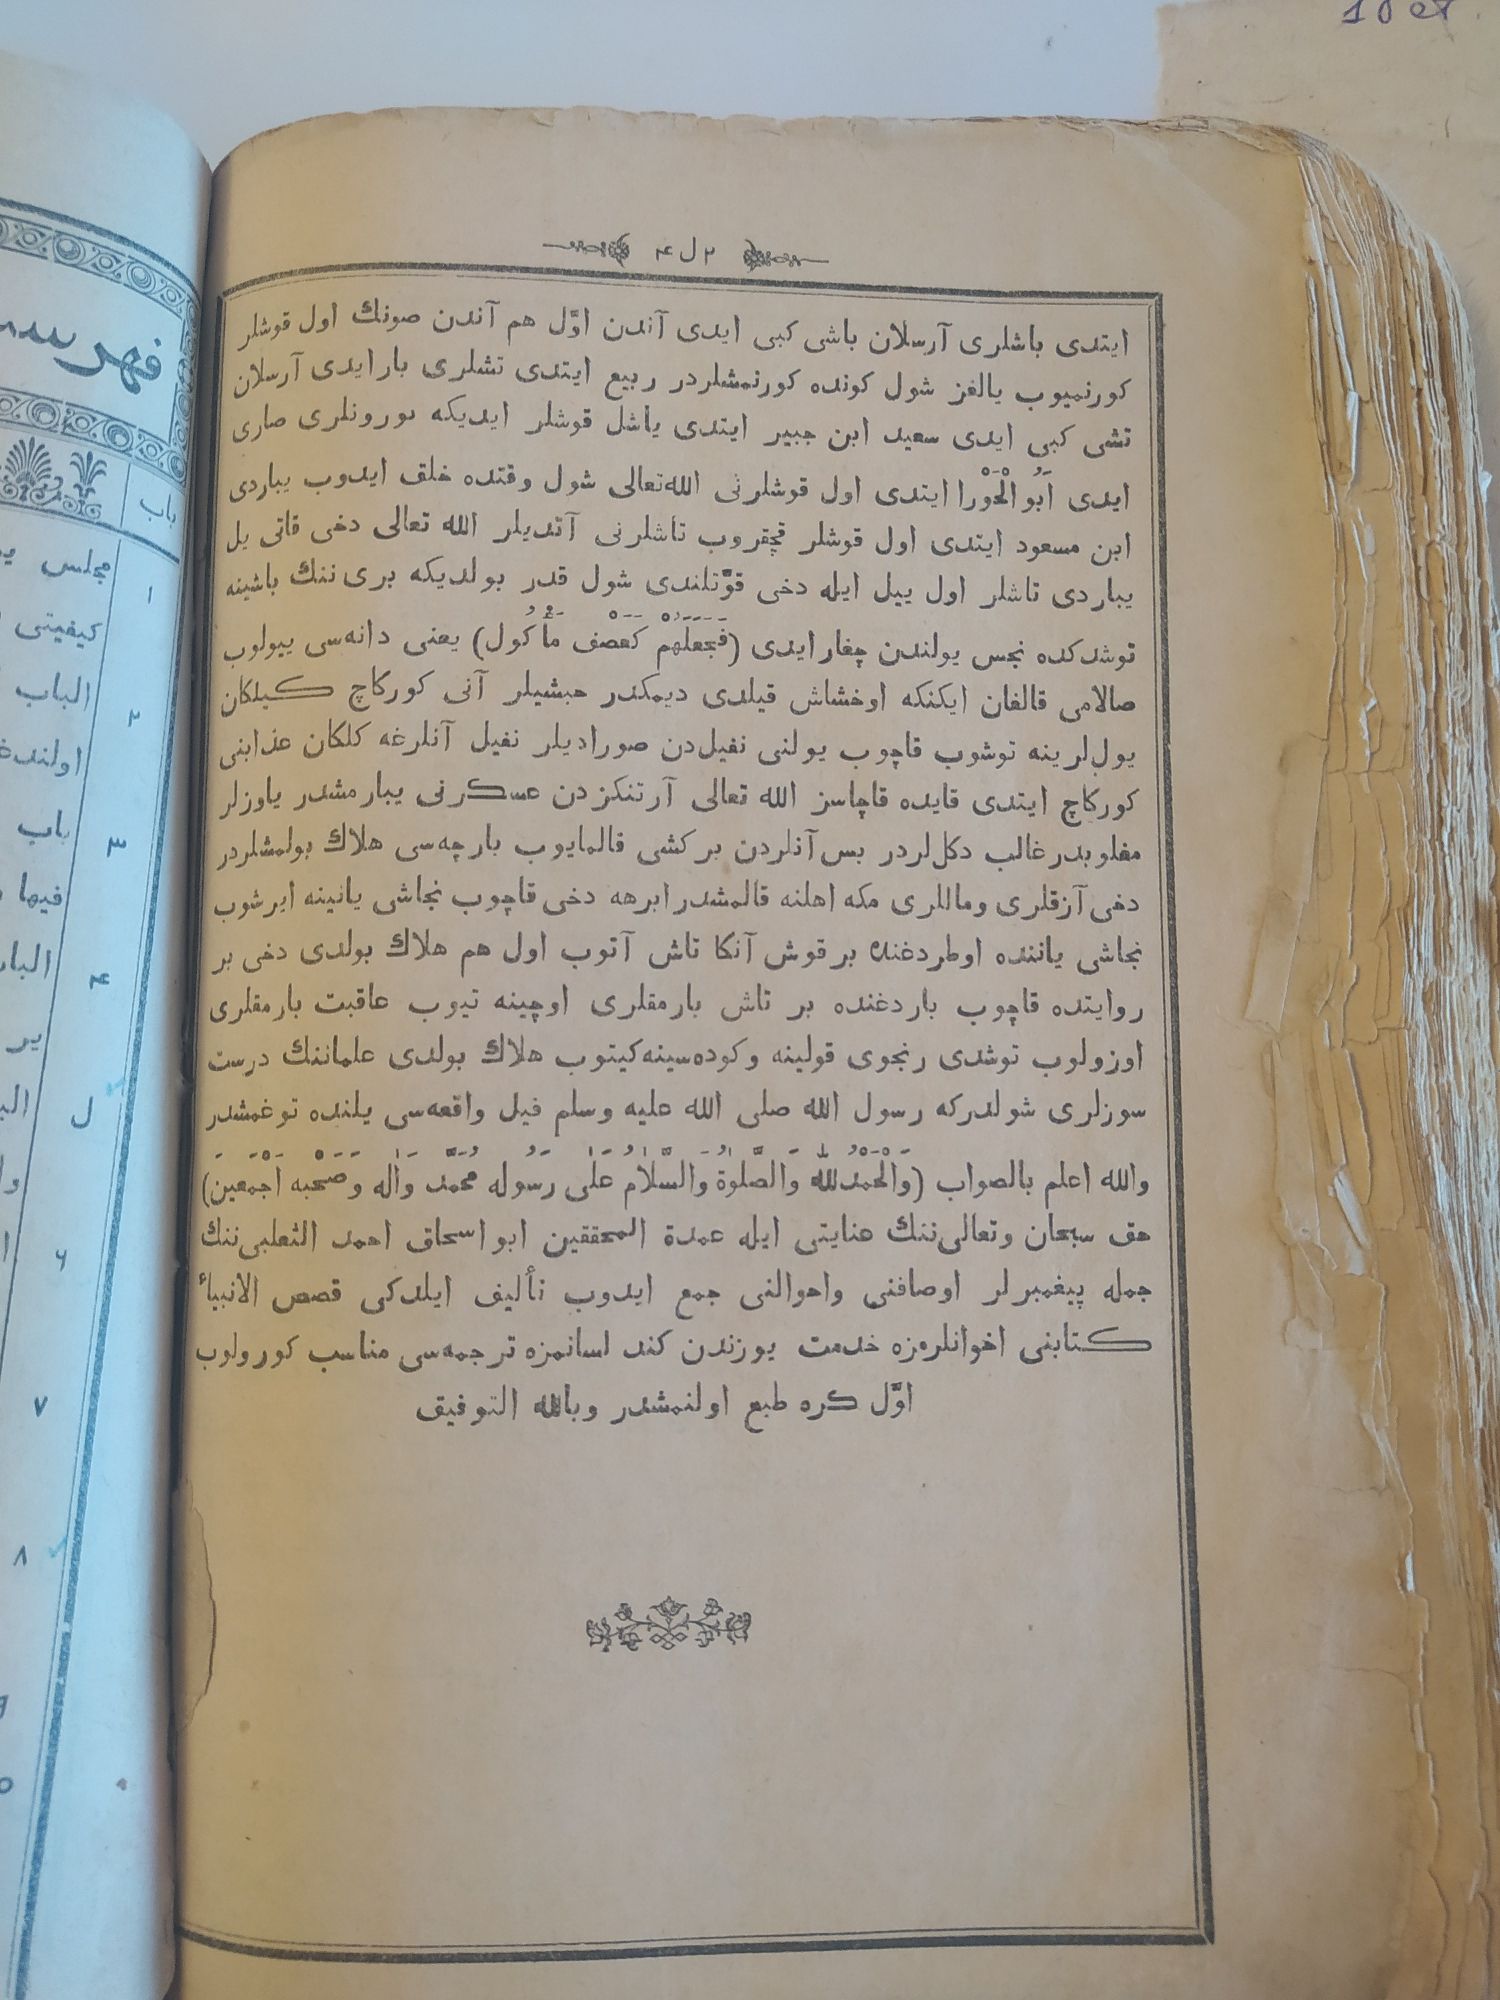 ۴۵۲
ایتدی باشلری آرسلان باشی کبی ایدی آندن اوَّل هم آندن صونك اول قوشلر
کورنمیوب یالغز شول کونده کورنمشلردر ربیع ایتدی تشلری بارایدی آرسلان
تشی کبی ایدی سعید ابن جبیر ایتدی یاشل قوشلر ایدیکه بورونلری صاری
ایدی اَبُو الْحَوْرا ایتدی اول قوشلرنی الله‌تعالی شول وقتده خلق ایدوب یباردی
ابن مسعود ایتدی اول قوشلر قچقروب تاشلرنی آتدیلر الله تعالی دخی قاتی یل
یباردی تاشلر اول ییل ایله دخی قوَّتلندی شول قدر بولدیکه بری ننك باشینه
توشدکده نجس یولندن چغار ایدی (فَجَعَلَهُمْ كَعَصْفٍ مَأْكُول) یعنی دانه‌سی ییولوب
صالامی قالغان ایکنکه اوخشاش قیلدی دیمکدر حبشیلر آنی کورکاچ کیلکان
یول‌لرینه توشوب قاچوب یولنی نفیل‌دن صورادیلر نفیل آنلرغه کلکان عذابنی
کورکاچ ایتدی قایده قاچاسز الله تعالی آرتنکزدن عسکرنی یبارمشدر یاوزلر
مغلوبدر غالب دکل‌لردر بس آنلردن بر کشی قالمایوب بارچه‌سی هلاك بولمشلردر
دخی آزقلری وماللری مکه اهلنه قالمشدر ابرهه دخی قاچوب نجاشی یانینه ایرشوب
نجاشی یاننده اوطردغنده بر قوش آنکا تاش آتوب اول هم هلاك بولدی دخی بر
روایتده قاچوب باردغنده بر تاش بارمقلری اوچینه تیوب عاقبت بارمقلری
اوزولوب توشدی رنجوی قولینه وکوده‌سینه کیتوب هلاك بولدی علماننك درست
سوزلری شولدرکه رسول الله صلی الله علیه وسلم فیل واقعه‌سی یلنده توغمشدر
والله اعلم بالصواب (وَالْحَمْدُ لِلّٰه وَالصَّلٰوةُ وَالسَّلاٰمُ عَلٰى رَسُوله مُحَمَّد وَاٰله وَصَحْبِه اَجْمَعِين)
حق سبحان وتعالی‌ننك عنایتی ایله عمدة المحققین ابو اسحاق احمد الثعلبی‌ننك
جمله پیغمبرلر اوصافنی واحوالنی جمع ایدوب تألیف ایلدکی قصص الانبیاء
کتابنی اخوانلرمزه خدمت یوزندن کند لسانمزه ترجمه‌سی مناسب کورولوب
اوَّل کره طبع اولنمشدر وبالله التوفیق
باب
مجلس
۱
کیفیتی
الباب
۲
باب
۳
فیها
۴
۵
۶
۷
۸